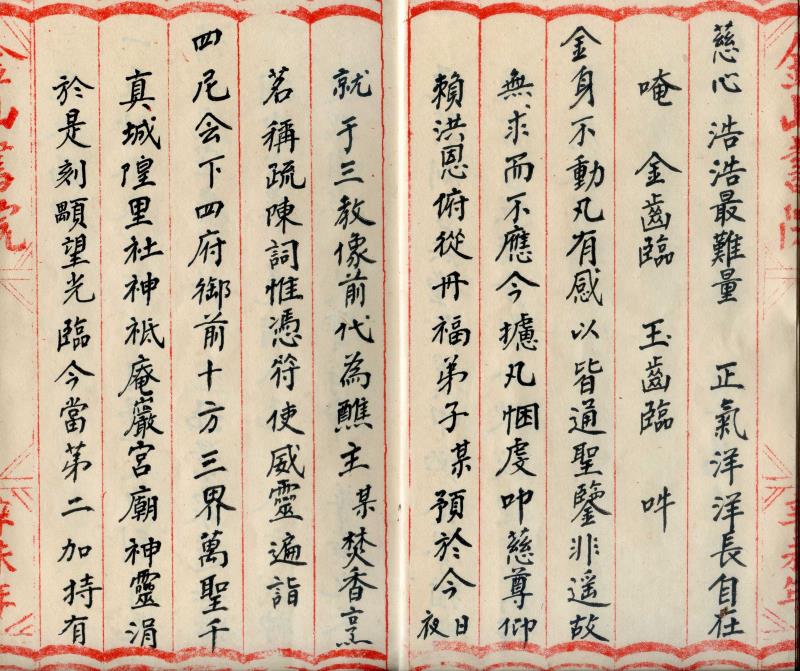 金山書院 辛未年
慈心浩浩最難量 正氣洋洋長自在
唵 金齒臨 玉齒臨 吽
金身不動凡有感以皆通聖鑒非遥故
無求而不應今據凡悃虔叩慈尊仰
賴洪恩俯從冊福弟子某預於今日夜
就于三教像前代為醮主某焚香烹
茗稱疏陳詞惟憑符使威靈遍詣
四尼会下四府御前十方三界萬聖千
真城隍里社神祇庵巖宮廟神靈涓
於是刻顒望光臨今當第二加持有
金山書院 辛未年